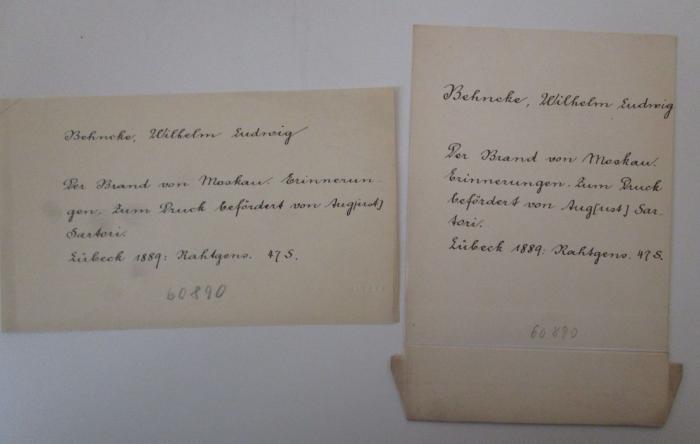 Behncke, Wilhelm Ludwig
Der Brand von Moskau. Erinnerun-
gen. Zum Druck befördert von Aug[ust]
Sartori.
Lübeck 1889: Rahtgens. 47 S.
60890
Behncke, Wilhelm Ludwig
Der Brand von Moskau.
Erinnerungen. Zum Druck
befördert von Aug[ust] Sar-
tori.
Lübeck 1889: Rahtgens. 47 S.
60890